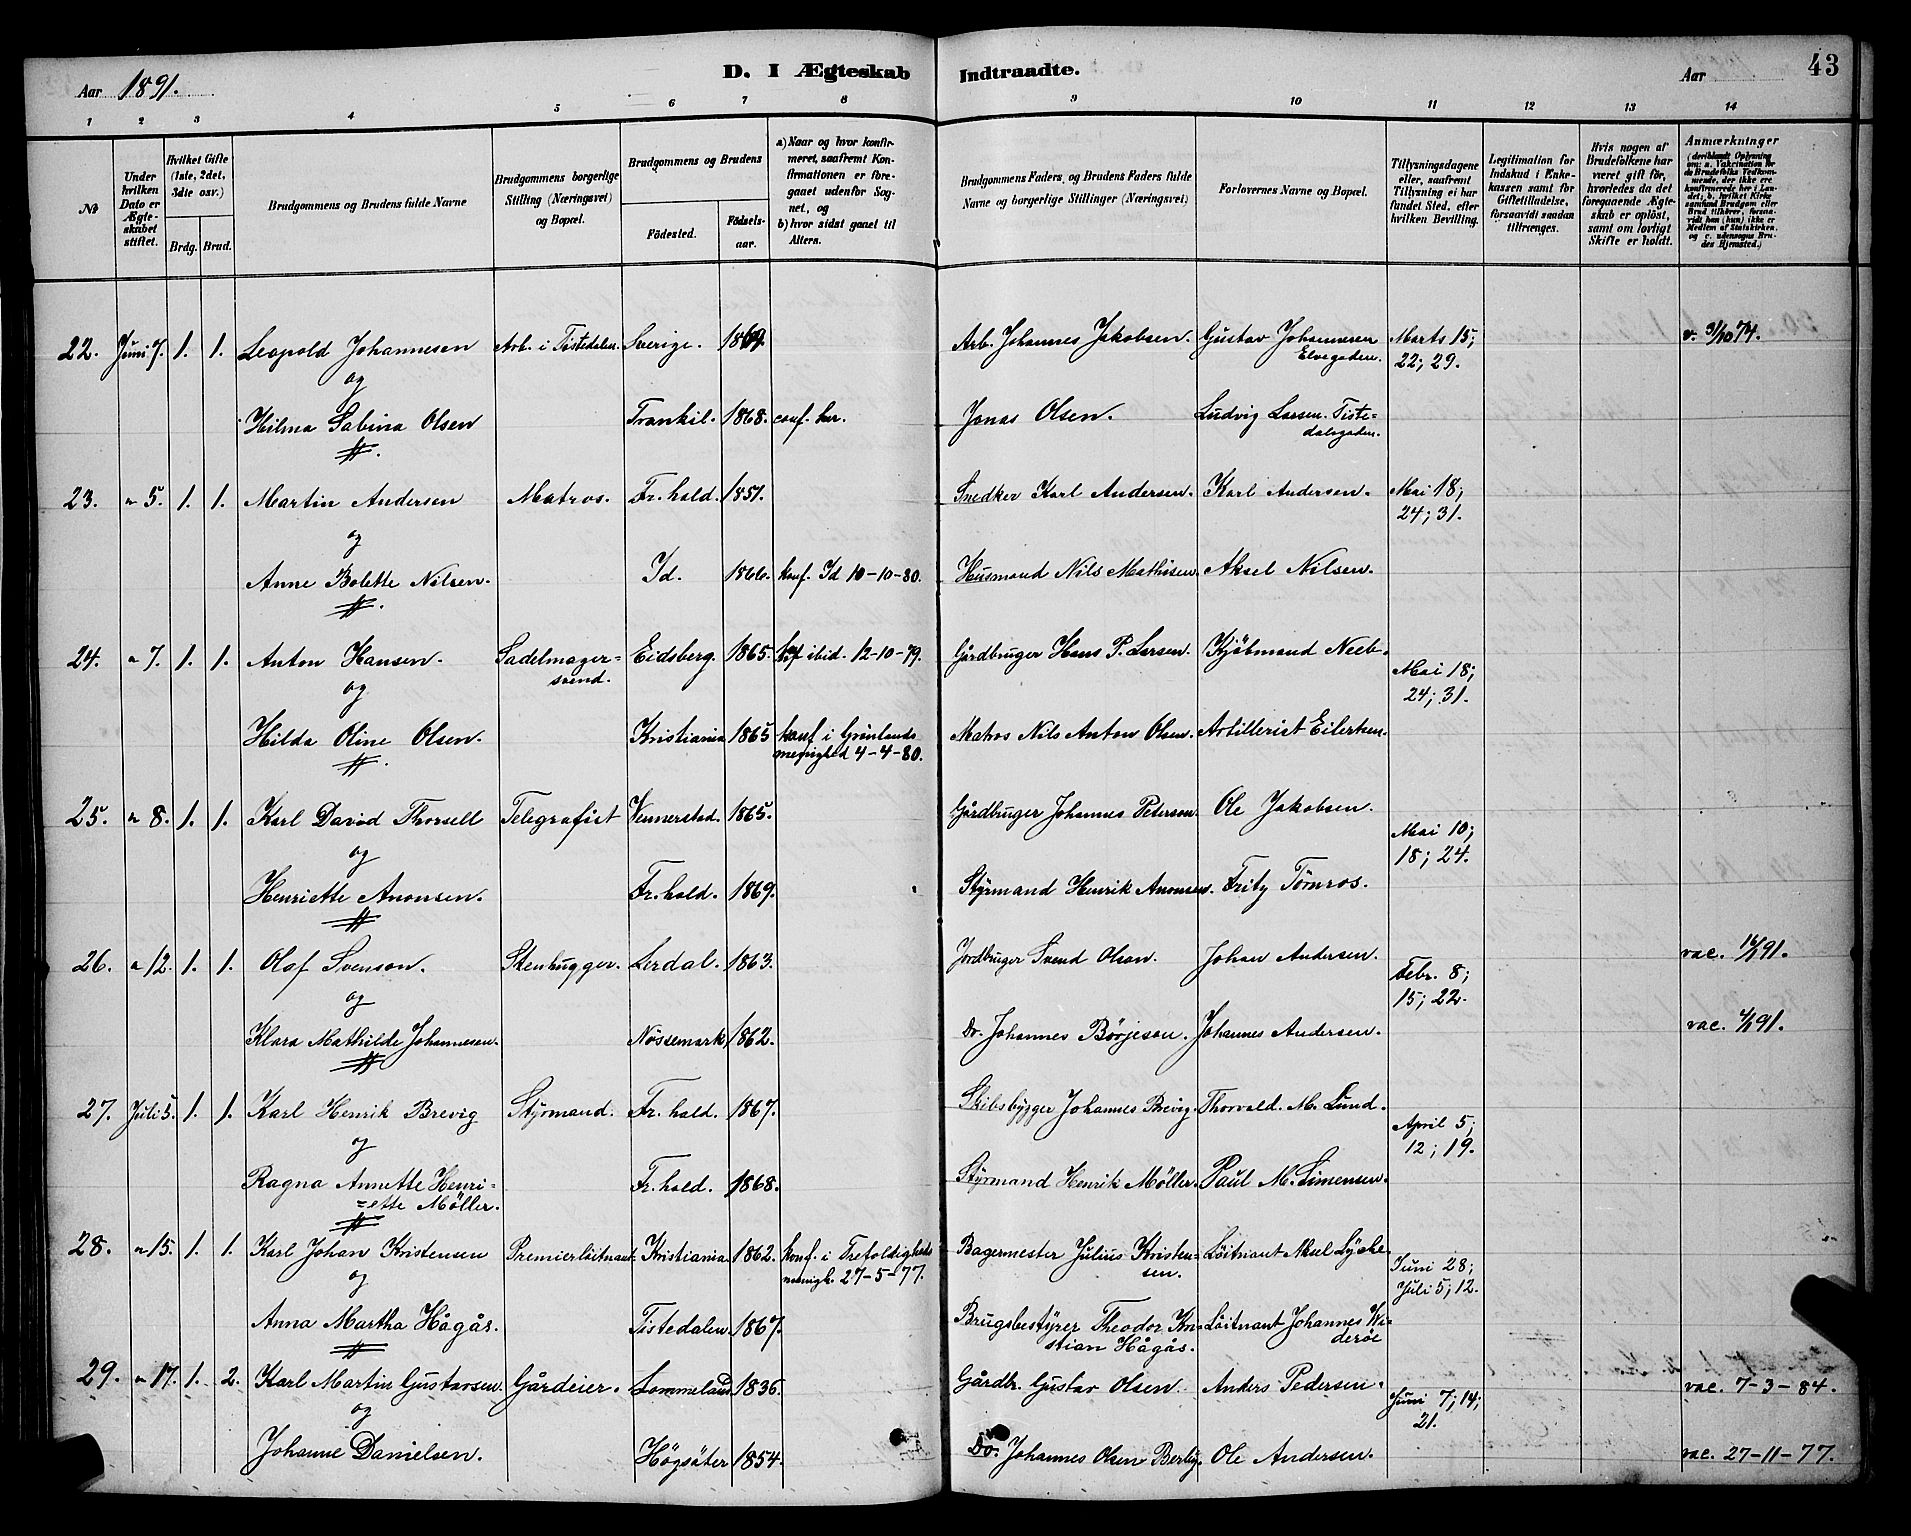 Aar 1891. D. I Ægteskab Indtraadte. Aar 43
1 2 3 4 5 6 7 8 9 10 11 12 13 14
№
Under hvilken Dato er Ægteskabet stiftet.
Hvilket Gifte (1ste, 2det, 3dte osv.)
Brdg. Brud.
Brudgommens og Brudens fulde Navne
Brudgommens borgerlige Stilling (Næringsvei) og Bopæl.
Brudgommens og Brudens
Fødested. Fødselsaar.
a) Naar og hvor konfirmeret, saafremt Konfirmationen er foregaaet udenfor Sognet, og
b) hvor sidst gaaet til Alters.
Brudgommens Faders, og Brudens Faders fulde Navne og borgerlige Stillinger (Næringsvei)
Forlovernes Navne og Bopæl.
Tillysningsdagene eller, saafremt Tillysning ei har fundet Sted, efter hvilken Bevilling.
Legitimation for Indskud i Enkekassen samt for Giftetilladelse, forsaavidt saadan tiltrænges.
Hvis nogen af Brudefolkene har været gift før, hvorledes da det foregaaende Ægteskab er opløst, samt om lovligt Skifte er holdt.
Anmærkninger
(deriblandt Oplysning om: a. Vakcination for de Brudefolks Vedkommende, der ikke ere konfirmerede her i Landet; b. hvilket Kirkesamfund Brudgom eller Brud tilhører, forsaavidt han (hun) ikke er Medlem af Statskirken. og c. udensogns Brudes Hjemsted.)
22. Juni 7. 1. 1. Leopold Johannesen Arb. i Tistedalen. Sverige. 1869. Arb. Johannes Jakobsen. Gustav Johannesen Elvegaden. Marts 15; 22; 29. v. 31/10 74.
og
Hilma Sabina Olsen Trankil. 1868. conf. her. Jonas Olsen. Ludvig Larsen. Tistedalsgaden.
23. " 5. 1. 1. Martin Andersen Matros. Fr.hald. 1857. Snedker Karl Andersen. Karl Andersen. Mai 18; 24; 31.
og
Anne Bolette Nilsen. Id. 1866. konf. Id 10-10-80. Husmand Nils Mathisen. Aksel Nilsen.
24. " 7. 1. 1. Anton Hansen. Sadelmagersvend. Eidsberg. 1865. kof ibid. 12-10-79. Gårdbruger Hans P. Larsen. Kjöbmand Neeb. Mai 18; 24; 31.
og
Hilda Oline Olsen. Kristiania 1865 konf i Grönlands menighed 4-4-80. Matros Nils Anton Olsen. Artillerist Eilertsen.
25. " 8. 1. 1. Karl David Thorsell Telegrafist Vennerstad. 1865. Gårdbruger Johannes Peterson. Ole Jakobsen. Mai 10; 18; 24.
og
Henriette Anonsen. Fr.hald. 1869. Styrmand Henrik Anonsens. Fritz Törnros.
26. " 12. 1. 1. Olaf Svenson. Stenhugger. Lerdal. 1863. Jordbruger Svend Olson. Johan Andersen. Febr. 8; 15; 22. vac.
og
Klara Mathilde Johannesen. Nössemark, 1862. Do. Johannes Börjeson. Johannes Andersen. vac.
27. Juli 5. 1. 1. Karl Henrik Brevig Styrmand. Fr.hald. 1867. Skibsbygger Johannes Brevig. Thorvald. M. Lund. April 5; 12; 19.
og
Ragna Annette Henriette Möller. Fr.hald. 1868. Styrmand Henrik Möller. Paul M. Simensen.
28. " 15. 1. 1. Karl Johan Kristensen Premierlöitnant. Kristiania 1862. konf i Trefoldigheds menigh. 27-5-77. Bagermester Julius Kristensen. Löitnant Aksel Lyche. Juni 28; Juli 5; 12.
og
Anna Martha Hågås. Tistedalen 1867. Brugsbestyrer Theodor Kristian Hågås. Löitnant Johannes Wideröe
29. " 17. 1. 2. Karl Martin Gustavsen. Gårdeier. Lommeland 1836. Gårdbr. Gustav Olsen. Anders Pedersen. Juni 7; 14; 21. vac. 7-3-84.
og
Johanne Danielsen. Högsäter 1854. Do. Johannes Olsen Berby. Ole Andersen. vac. 27-11-77.